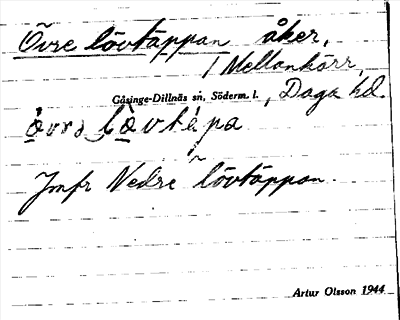 Övre lövtäppan åker,
i Mellankärr,
Gåsinge-Dillnäs sn, Söderm. l., Daga hd.
Jmfr Nedre lövtäppan.
Artur Olsson 1944